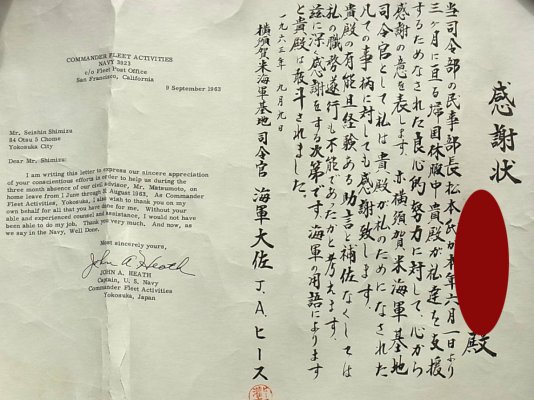 COMMANDER FLEET ACTIVITIES
NAVY 3923
c/o Fleet Post Office
San Francisco, California
9 September 1963
Mr. Seishin Shimizu
84 Otsu 5 Chome
Yokosuka City
Dear Mr. Shimizu:
I am writing this letter to express our sincere appreciation
of your conscientious efforts in order to help us during the
three month absence of our civil advisor, Mr. Matsumoto, on
home leave from 1 June through August 1963. As Commander
Fleet Activities, Yokosuka, I also wish to thank you on my
own behalf for all that you have done for me. Without your
able and experienced counsel and assistance, I would not have
been able to do my job. Thank you very much. And now, as
we say in the Navy, Well Done.
Most sincerely yours,
John A. Heath
JOHN A. HEATH
Captain, U. S. Navy
Commander Fleet Activities
Yokosuka, Japan
感謝状
殿
当司令部の民事部長松本氏が本年六月一日より
三ヶ月に亘る帰国休暇中貴殿が私達を支援
するためなされた良心的努力に対して、心から
感謝の意を表します。亦横須賀米海軍基地
司令官として私は貴殿が私のためになされた
凡ての事柄に対しても感謝致します。
貴殿の有能且経験ある助言と補佐なくしては
私の職務遂行も不能であったかと考えます。
茲に深く感謝をする次第です。海軍の用語によります
と貴殿は善斗されました。
一九六三年九月九日
横須賀米海軍基地司令官 海軍大佐 J.A.ヒース